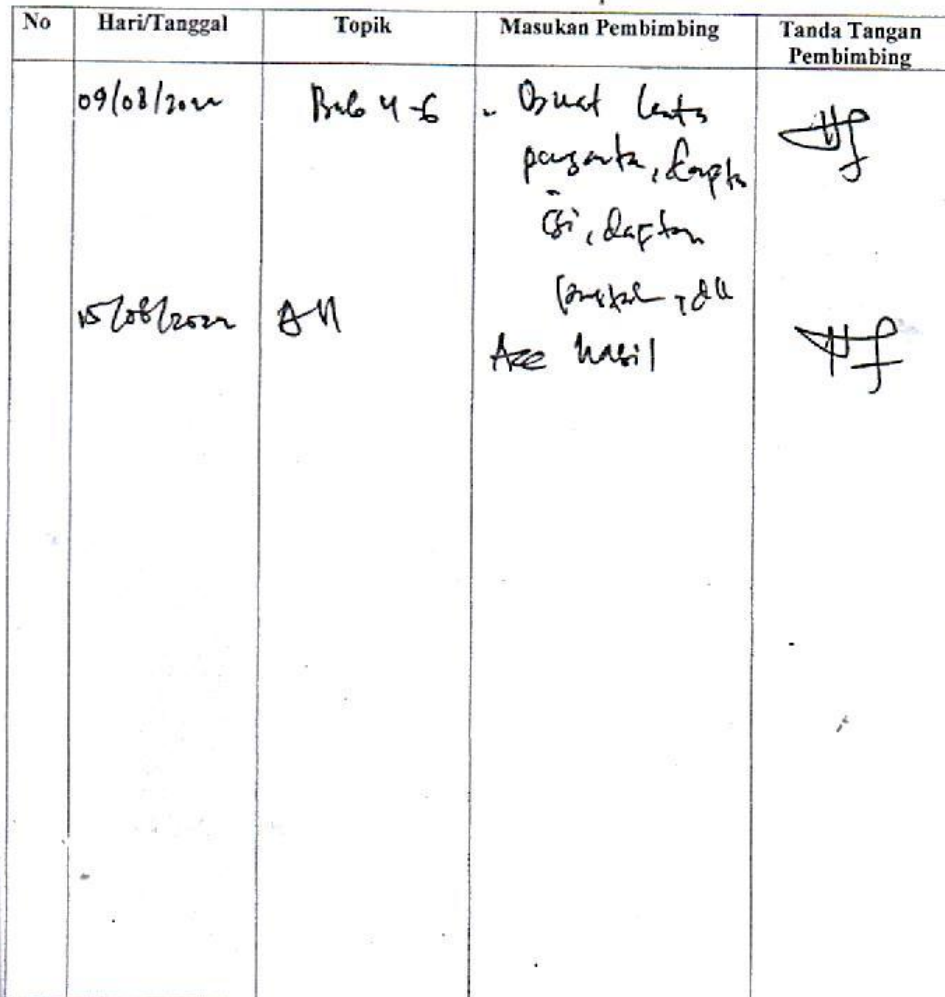 No Hari/Tanggal Topik Masukan Pembimbing Tanda Tangan Pembimbing
09/08/2022 Bab 4-6 - Buat kata
pengantar, daftar
isi, daftar
dll
15/08/2022 All
Acc hasil